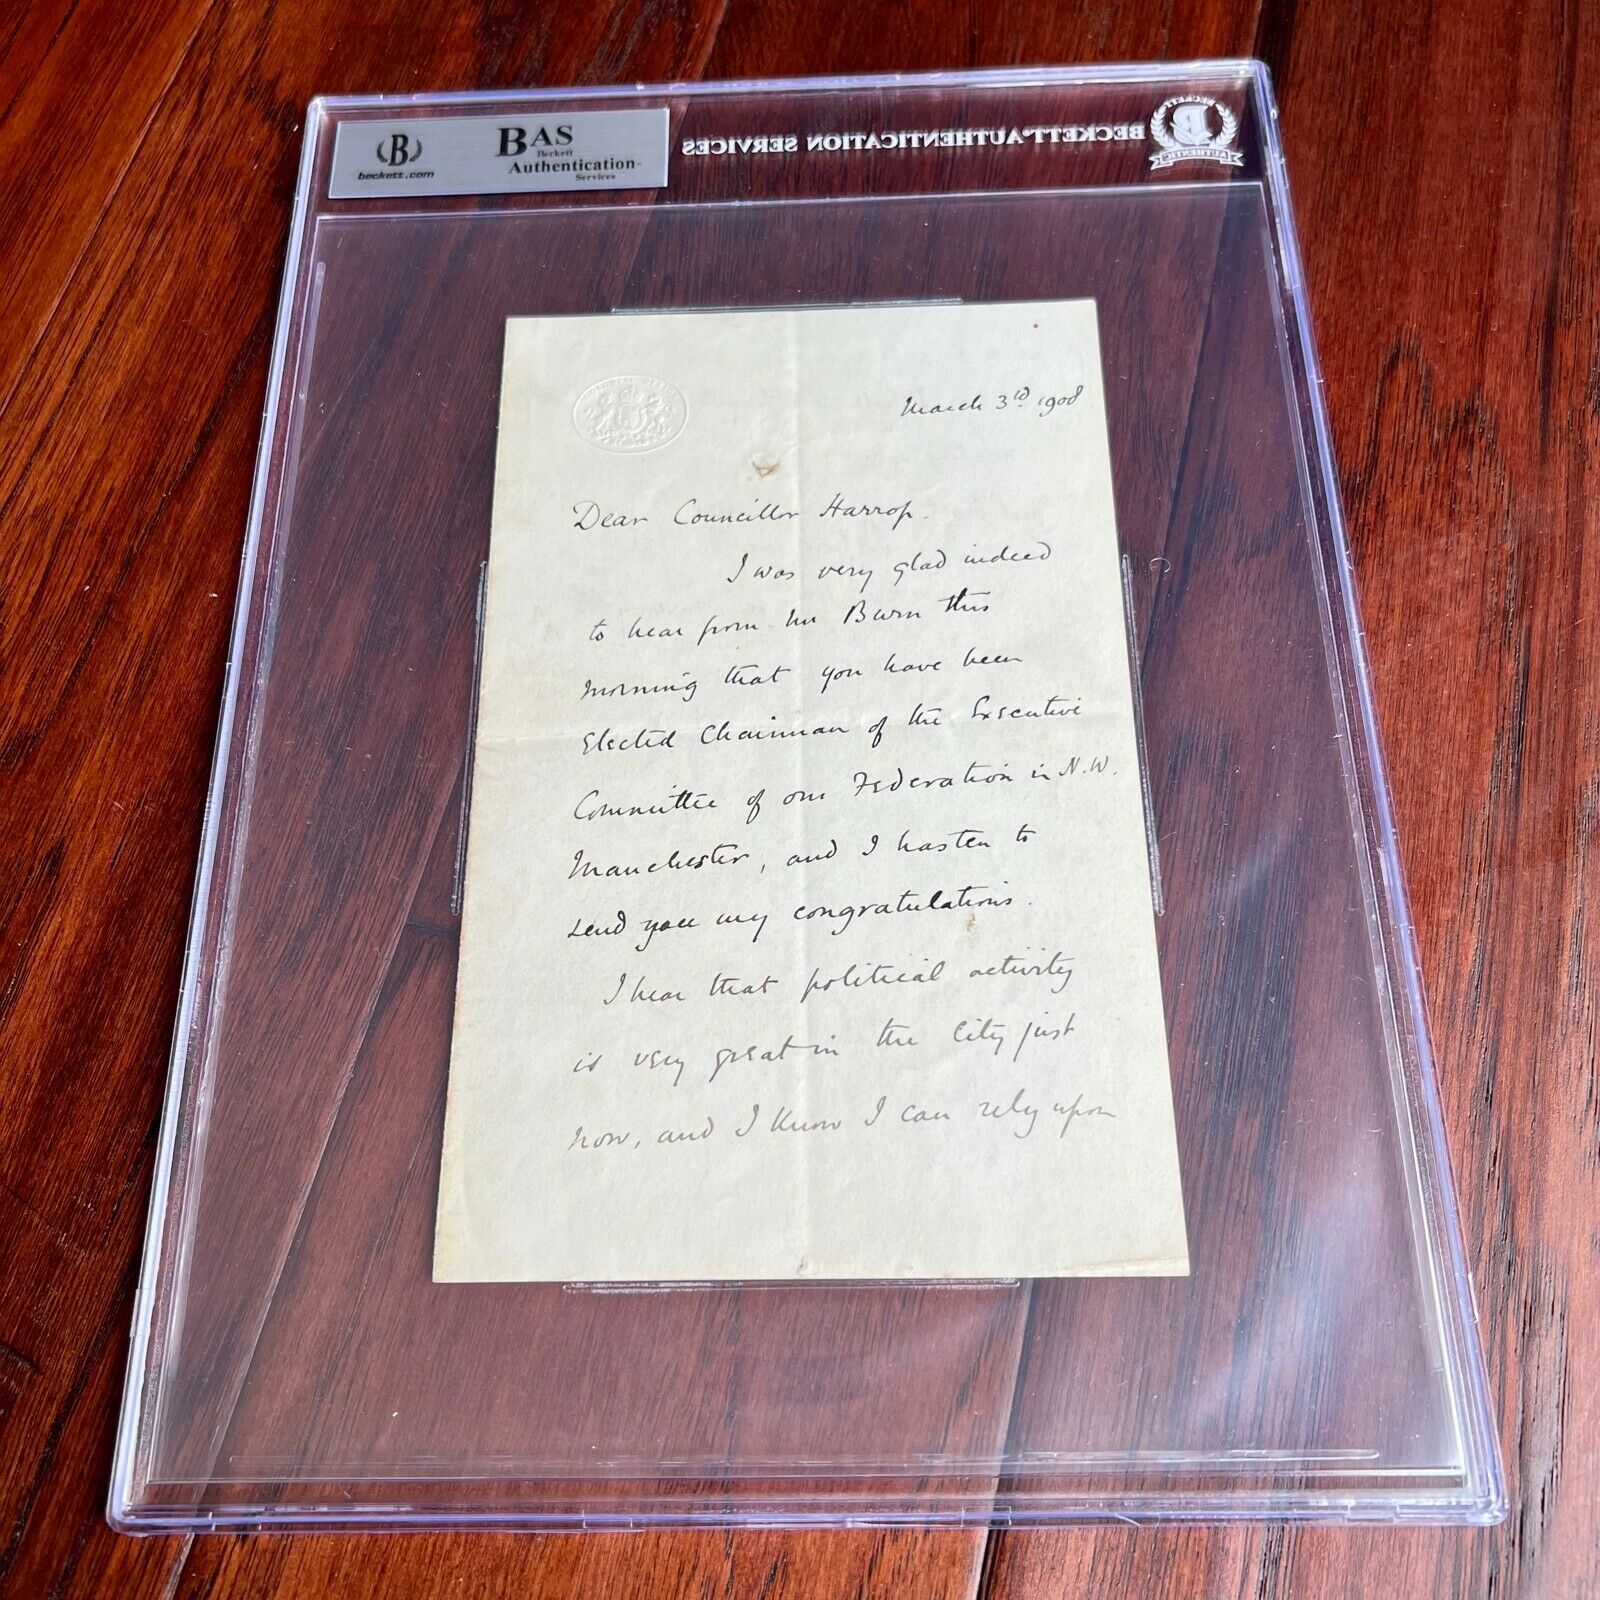 B
beckett.com
BAS
Beckett
Authentication
Services
BECKETT AUTHENTICATION SERVICES
BECKETT
B
AUTHENTIC
March 3rd 1908
Dear Councillor Harrop.
I was very glad indeed
to hear from Mr Burn this
morning that you have been
elected Chairman of the Executive
Committee of our Federation in N.W.
Manchester, and I hasten to
send you my congratulations.
I hear that political activity
is very great in the City just
now, and I know I can rely upon